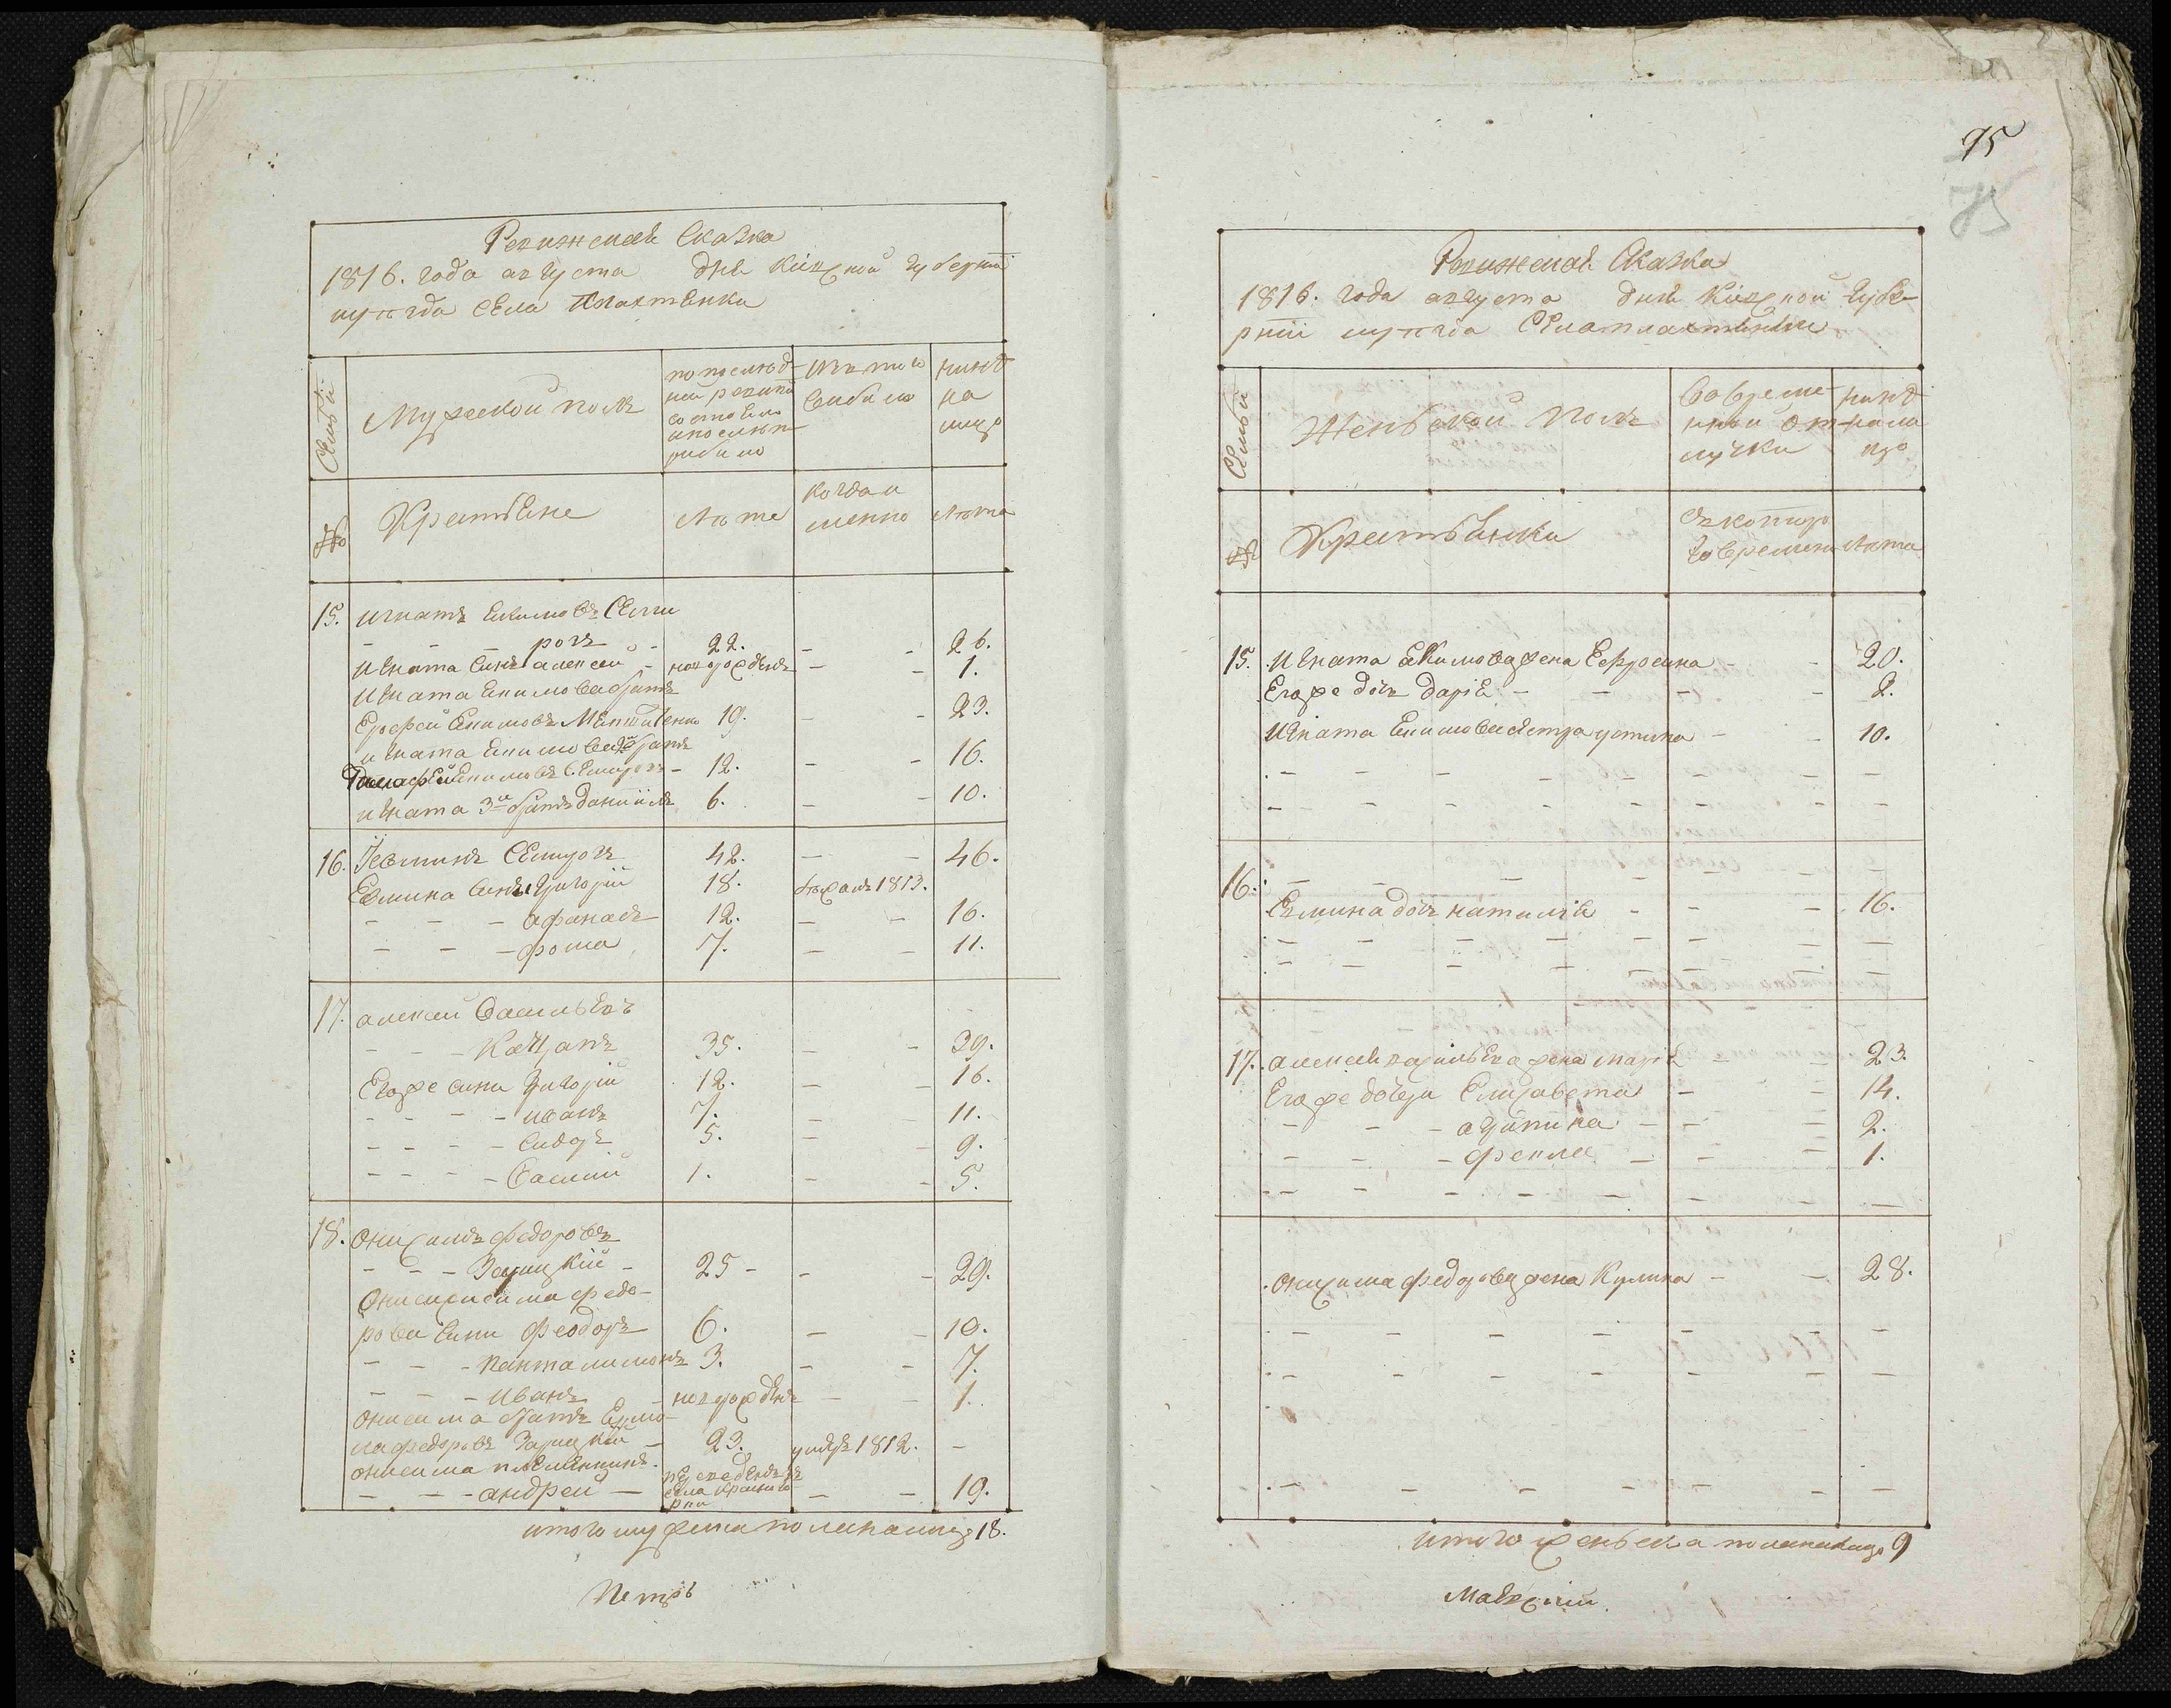 Ревижская Сказка
1816. года августа дня Кіевской губерніи
уезда села Плахтенки
Семьи
Мужеской полъ
по последней ревизіи состояло и после прибыло
Изъ того выбыло
ныне на лицо
№
Крестьяне
Лета
когда именно
Лета
15. Игнатъ Екимовъ Семи
- - рогъ - 22. - - 26.
Игната Сынъ алексей - новорожденъ - - 1.
Игната Екимова братъ
Ерофей Екимовъ 19. - - 23.
игната Екимова 2й братъ
Екимовъ Семирогъ - 12. - - 16.
игната 3й братъ даніилъ 6. - - 10.
16. Семирогъ 42. - - 46.
сынъ Григорій 18. бежалъ 1813.
- - - афанасъ 12. - - 16.
- - - фома 7. - - 11.
17. алексей Васильевъ
- - - Кацапъ 35. - - 39.
Егоже сыны Григорій 12. - - 16.
- - - - иванъ 7. - - 11.
- - - - Сидоръ 5. - - 9.
- - - - Василій 1. - - 5.
18. Онисимъ федоровъ
- - - Зарицкій - 25 - - - 29.
Онисима федо-
рова сыны феодоръ 6. - - 10.
- - - Панталимонъ 3. - - 7.
- - - Иванъ - новорожденъ - - 1.
Онисима братъ Ермо-
ла федоровъ Зарицкій - 23. умеръ 1812. -
онисима племенникъ
- - - андрей - переведенъ изъ села - - 19.
итого мужеска пола на лицо 18.
Петръ
95
75
Ревижская Сказка
1816. года августа дня Кіевской губе-
рніи уезда Села плахтенки
Семьи
Женской Полъ
Во времен-
ной от-
лучки
ныне
на ли
цо
№
Крестьянки
съ котораго времени
Лета
15. Игната Екимова жена Ефросина - - 20.
Егоже дочъ дарія - - - - 2.
Игната Екимова сестра устина - - 10.
16. - - - -
дочъ наталія - - - 16.
17. алексея васильева жена марія - - 23.
Егоже дочери Елизавета - - 14.
- - - агрипина - - - 2.
- - - фекла - - - 1.
Онисима федорова жена Кулина - - 28.
итого женска пола на лицо 9